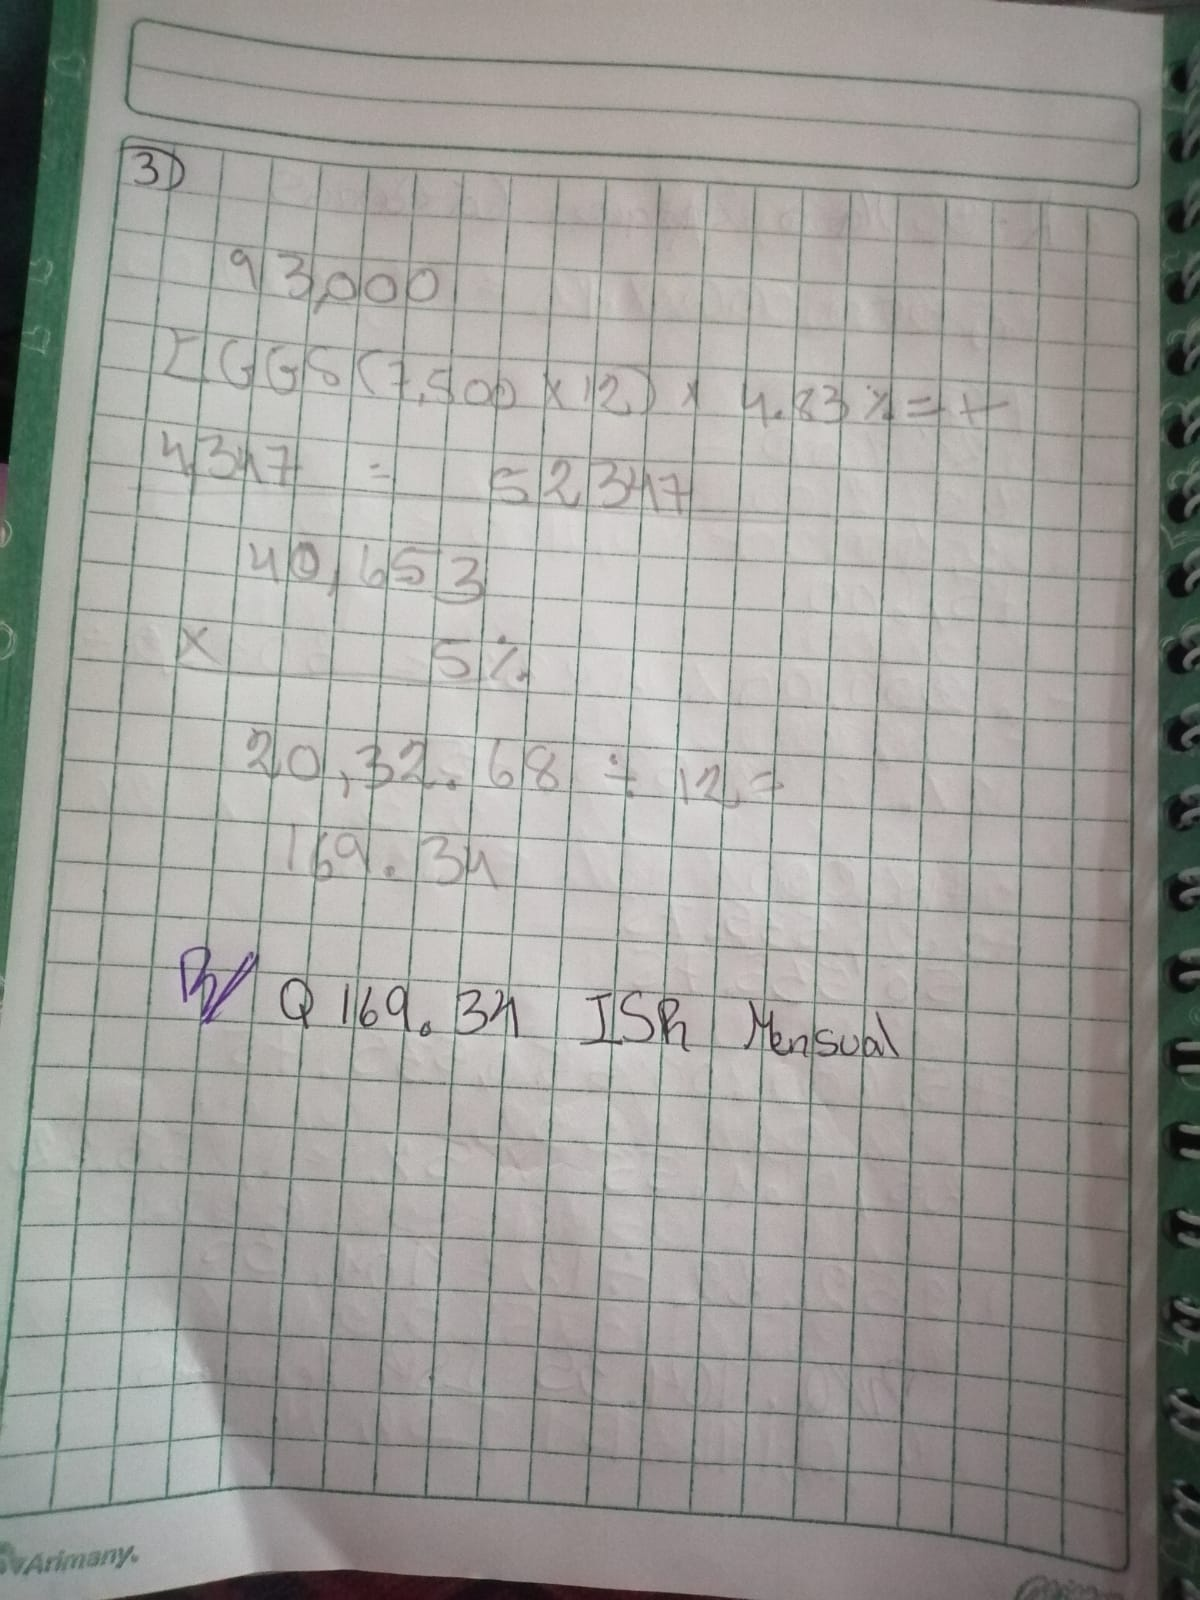 3)
93,000
IGGS (7,500 x 12) x 4.83% = +
4347 = 52347
40,653
x 5%
20,32.68 ÷ 12 =
169.34
R// Q 169.34 ISR Mensual
Arimany.